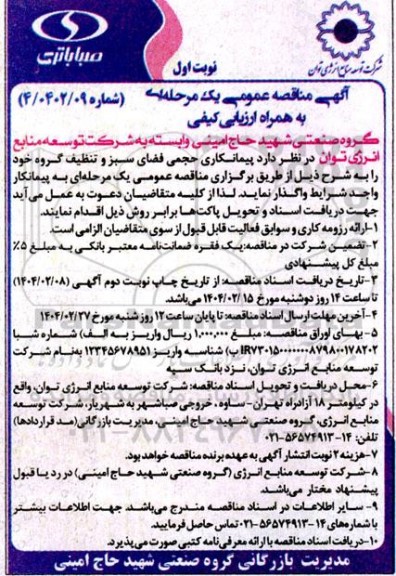 صباباتری
شرکت توسعه منابع انرژی توان
نوبت اول
آگهی مناقصه عمومی یک مرحله‌ای (شماره ۴/۰۴۰۲/۰۹)
به همراه ارزیابی کیفی
گروه صنعتی شهید حاج امینی وابسته به شرکت توسعه منابع
انرژی توان در نظر دارد پیمانکاری حجمی فضای سبز و تنظیف گروه خود
را به شرح ذیل از طریق برگزاری مناقصه عمومی یک مرحله‌ای به پیمانکار
واجد شرایط واگذار نماید. لذا از کلیه متقاضیان دعوت به عمل می آید
جهت دریافت اسناد و تحویل پاکت‌ها برابر روش ذیل اقدام نمایند.
۱-ارائه رزومه کاری و سوابق فعالیت قابل قبول از سوی متقاضیان الزامی است.
۲-تضمین شرکت در مناقصه: یک فقره ضمانت‌نامه معتبر بانکی به مبلغ ۵٪
مبلغ کل پیشنهادی
۳-تاریخ دریافت اسناد مناقصه: از تاریخ چاپ نوبت دوم آگهی (۱۴۰۴/۰۲/۰۸)
تا ساعت ۱۴ روز دوشنبه مورخ ۱۴۰۴/۰۲/۱۵ می‌باشد.
۴-آخرین مهلت ارسال اسناد مناقصه: تا پایان ساعت ۱۲ روز شنبه مورخ ۱۴۰۴/۰۲/۲۷
۵- بهای اوراق مناقصه: مبلغ ۱,۰۰۰,۰۰۰ ریال واریز به الف) شماره شبا
ب) شناسه واریز ۱۲۳۴۵۶۷۸۹۵۱ به‌نام شرکت
توسعه منابع انرژی توان، نزد بانک سپه
۶-محل دریافت و تحویل اسناد مناقصه: شرکت توسعه منابع انرژی توان، واقع
در کیلومتر ۱۸ آزادراه تهران- ساوه، خروجی صباشهر به شهریار، شرکت توسعه
منابع انرژی، گروه صنعتی شهید حاج امینی، مدیریت بازرگانی (مد قراردادها)
تلفن: ۱۴-۵۶۵۷۴۹۱۳-۰۲۱
۷-هزینه ۲ نوبت انتشار آگهی به عهده برنده مناقصه خواهد بود.
۸-شرکت توسعه منابع انرژی (گروه صنعتی شهید حاج امینی) در رد یا قبول
پیشنهاد مختار می‌باشد.
۹- سایر اطلاعات در اسناد مناقصه مندرج می‌باشد. جهت اطلاعات بیشتر
با شماره‌های ۱۴-۵۶۵۷۴۹۱۳-۰۲۱ تماس حاصل فرمایید.
۱۰-دریافت اسناد مناقصه با ارائه معرفی‌نامه کتبی صورت می‌پذیرد.
مدیریت بازرگانی گروه صنعتی شهید حاج امینی